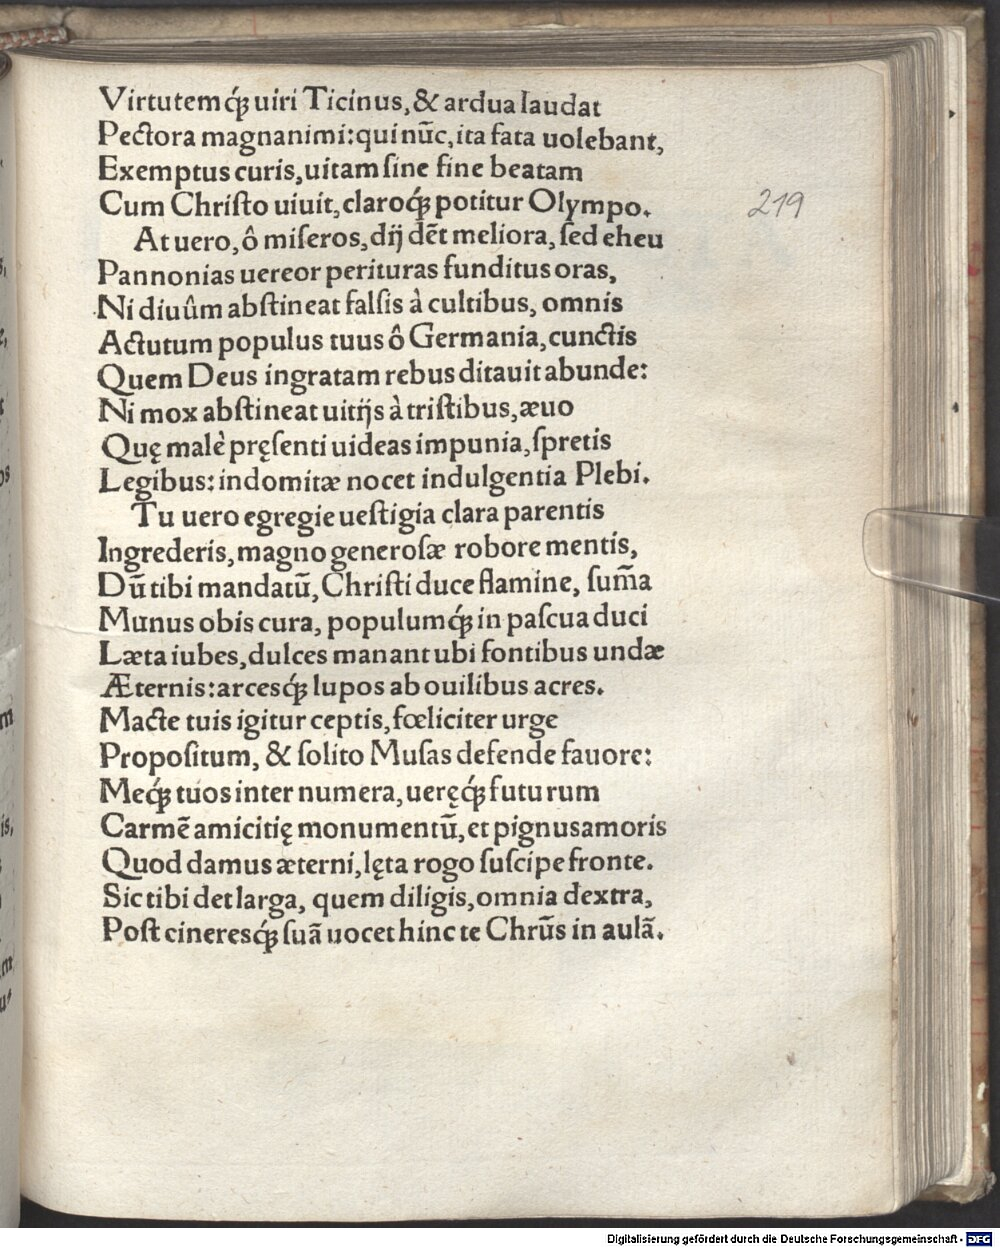 Virtutemq́ꝫ uiri Ticinus, & ardua laudat
Pectora magnanimi: qui nūc, ita fata uolebant,
Exemptus curis, uitam ſine fine beatam
Cum Chriſto uiuit, claroq́ꝫ potitur Olympo.
At uero, ô miſeros, dij dēt meliora, ſed eheu
Pannonias uereor perituras funditus oras,
Ni diuûm abſtineat falſis à cultibus, omnis
Actutum populus tuus ô Germania, cunctis
Quem Deus ingratam rebus ditauit abunde:
Ni mox abſtineat uitijs à triſtibus, æuo
Quę malè pręſenti uideas impunia, ſpretis
Legibus: indomitæ nocet indulgentia Plebi.
Tu uero egregie ueſtigia clara parentis
Ingrederis, magno generoſæ robore mentis,
Dū tibi mandatū, Chriſti duce flamine, ſum̄a
Munus obis cura, populumq́ꝫ in paſcua duci
Læta iubes, dulces manant ubi fontibus undæ
Æternis: arcesq́ꝫ lupos ab ouilibus acres.
Macte tuis igitur ceptis, fœliciter urge
Propoſitum, & ſolito Muſas defende fauore:
Meq́ꝫ tuos inter numera, uereq́ꝫ futurum
Carmē amicitię monumentū, et pignus amoris
Quod damus æterni, lęta rogo ſuſcipe fronte.
Sic tibi det larga, quem diligis, omnia dextra,
Poſt cineresq́ꝫ ſuā uocet hinc te Chrūs in aulā.
219
Digitalisierung gefördert durch die Deutsche Forschungsgemeinschaft - DFG